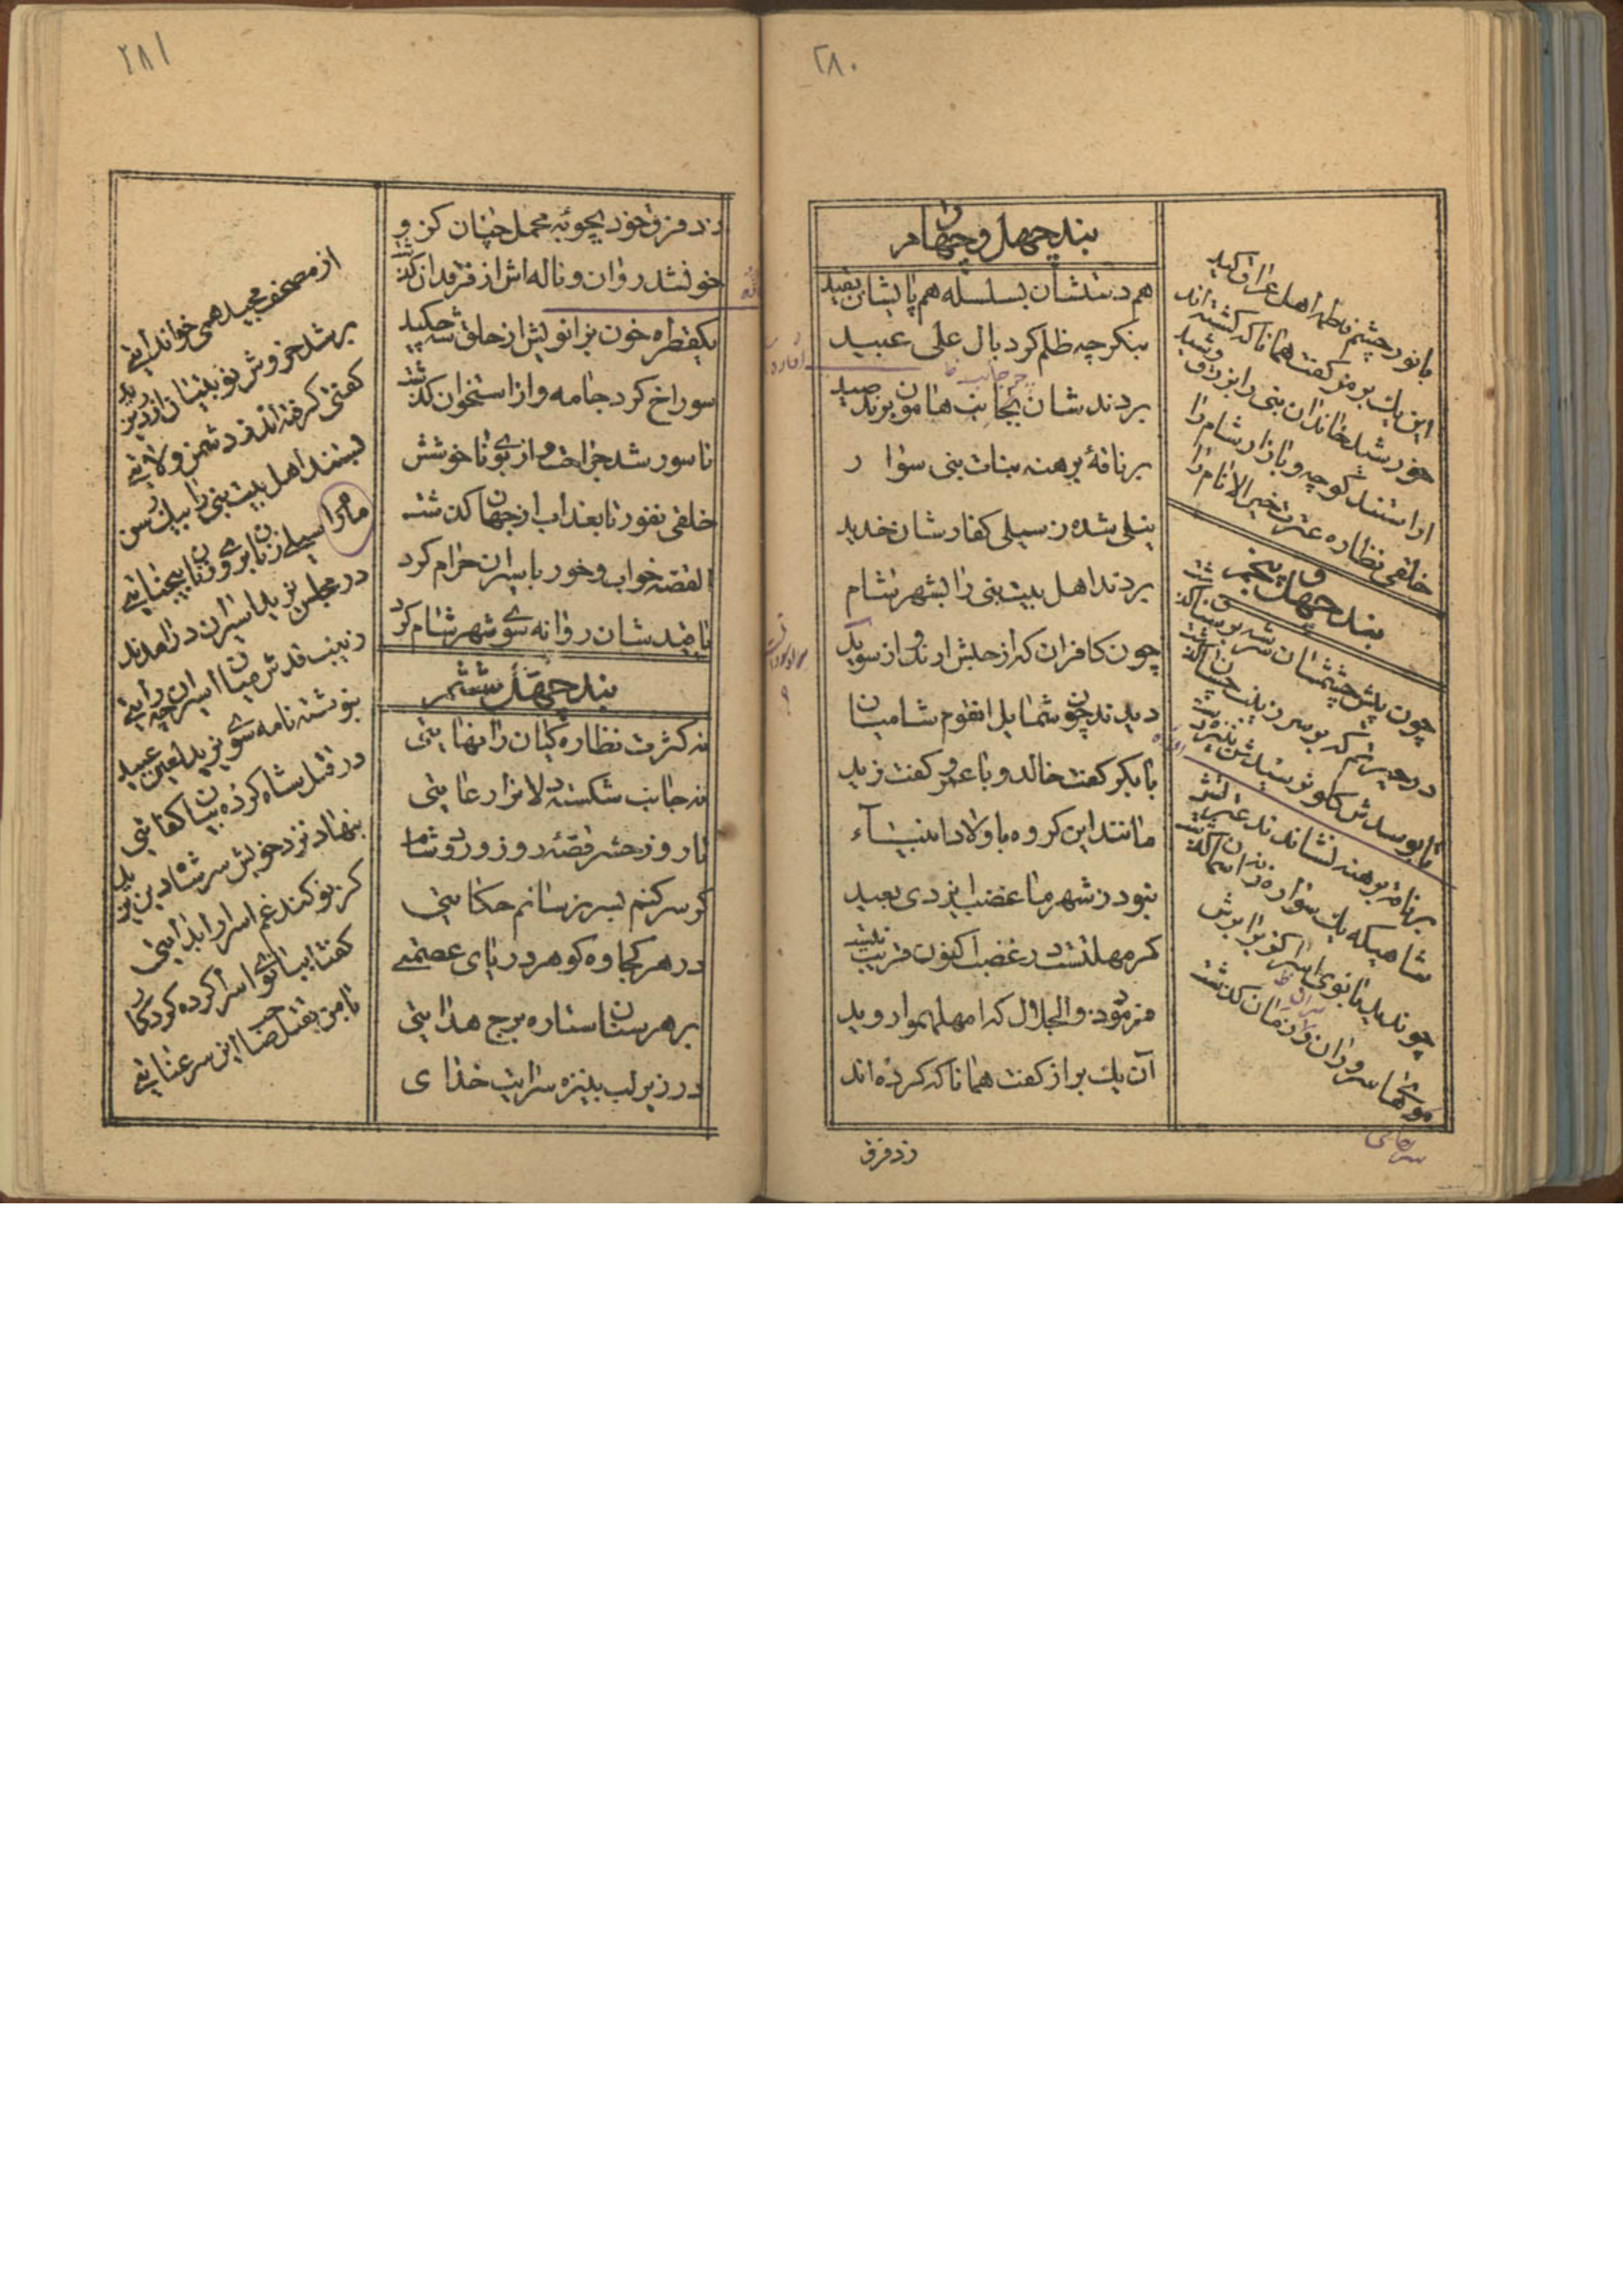 ٢٨٠
بند چهل و چهارم
هم دستشان بسلسله هم پایشان بقید
بنگر چه ظلم کرد بآل علی عبید
بردند شان بجانب هامون بر ند صید
بر ناقهٔ برهنه بنات نبی سوار
نیلی شده ز سیلی کفار شان خدید
بردند اهل بیت نبی را بشهر شام
چون کافران که از حبش ارند و از سوید
دیدند چون شمایل انقوم شامیان
با بکر گفت خالد و با عمرو گفت زید
مانند این گروه باولاد انبیآء
نبود ز شهر ما غضب ایزدی بعید
گر مهلتست در غضب اکنون قریب نیست
فرمود ذو الجلال که امهلهموا روید
آن یك براز گفت همانا که کرده‌اند
با نور چشم فاطمه اهل عراق کید
این یك برمز گفت همانا که کشته‌اند
خورشید خاندان نبی را بزرق و شید
اراستند کوچه و بازار شام را
خلقی نظاره عترت خیر الانام را
بند چهل و پنجم
چون پیش چشمشان سر شه بر سنان گذشت
در حیرتم که بر سر زینب چسان گذشت
تا بوسدش گلو نرسیدش بنیزه دست
بر ناقه برهنه نشاندند عترتش
شاهیکه یك سواره ز نه اسمان گذشت
چوندید بانوی اسرا کز برابرش
سرهای سروران زمان گذشت
زد فرق
٢٨١
زد فرق خود بچوبه محمل چنان کز و
خونشد روان و ناله‌اش از فرقدان گذشت
یکقطره خون بزانویش از حلق شه چکید
سوراخ کرد جامه و از استخوان گذشت
ناسور شد جراحت و از بوی ناخوشش
خلقی نفور تا بعذاب از جهان گذشت
القصه خواب و خور باسیران حرام کرد
با صید شان روانه سوی شهر شام کرد
بند چهل و ششم
نه کثرت نظاره کیان را نهایتی
نه جانب شکسته دلانرا رعایتی
تا روز حشر قصّهٔ روز ورود شام
گر سر کنم بسر نرسانم حکایتی
در هر کجاوه گوهر دریای عصمتی
بر هر سنان ستاره برج هدایتی
در زیر لب بنیزه سر ایت خدای
از مصحف مجید همی خواند ایتی
بر شد خروش نوبتیان از در یزید
گفتی گرفته‌اند ز دشمن ولایتی
بستند اهل بیت نبی را بیك رسن
ما را سیلی زنان بروی زنان بیجنایتی
در مجلس یزید اسیران در امدند
زینب قدش میان اسیران چو رایتی
بنوشته نامه سوی یزید لعین عبید
در قتل شاه کرده بیان کفایتی
بنهاد نزد خویش سر شاه دین یزید
کز نو کند غم اسرا را بدایتی
گفتا بیانوی اسرا کرده کردگار
با من بقتل صاحب این سر عنایتی